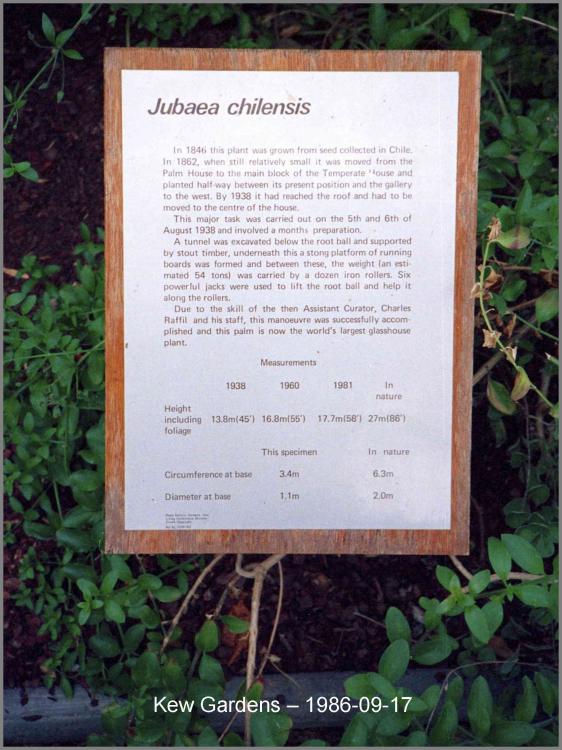 Jubaea chilensis
In 1846 this plant was grown from seed collected in Chile.
In 1862, when still relatively small it was moved from the
Palm House to the main block of the Temperate House and
planted half-way between its present position and the gallery
to the west. By 1938 it had reached the roof and had to be
moved to the centre of the house.
This major task was carried out on the 5th and 6th of
August 1938 and involved a months preparation.
A tunnel was excavated below the root ball and supported
by stout timber, underneath this a stong platform of running
boards was formed and between these, the weight (an esti-
mated 54 tons) was carried by a dozen iron rollers. Six
powerful jacks were used to lift the root ball and help it
along the rollers.
Due to the skill of the then Assistant Curator, Charles
Raffil and his staff, this manoeuvre was successfully accom-
plished and this palm is now the world's largest glasshouse
plant.
Measurements
1938 1960 1981 In
nature
Height
including 13.8m(45') 16.8m(55') 17.7m(58') 27m(86")
foliage
This specimen In nature
Circumference at base 3.4m 6.3m
Diameter at base 1.1m 2.0m
Kew Gardens – 1986-09-17